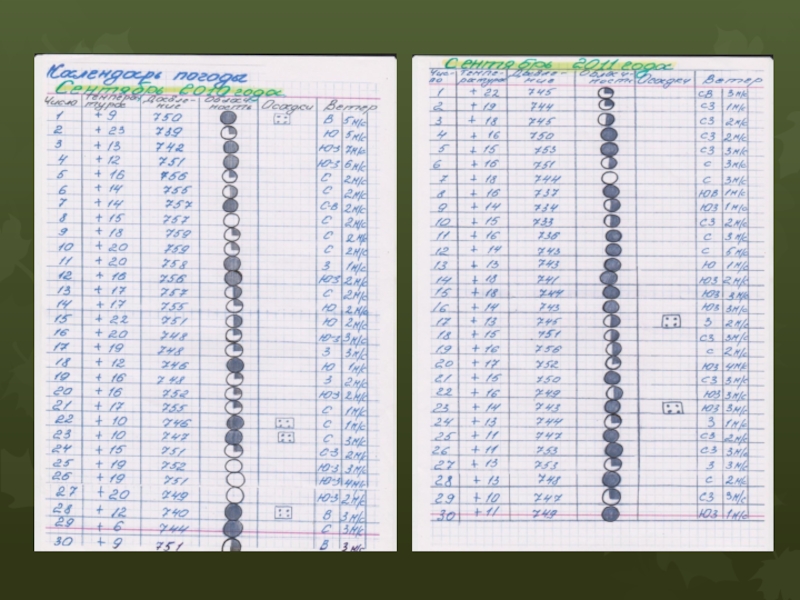 Календарь погоды
Сентябрь 2010 года
Число Температура Давление Облачность Осадки Ветер
1 +9 750 В 5м/с
2 +23 739 Ю 5м/с
3 +13 742 ЮЗ 7м/с
4 +12 751 Ю-З 6м/с
5 +16 756 С 2м/с
6 +14 755 С 2м/с
7 +14 757 С-В 2м/с
8 +15 757 С 2м/с
9 +18 759 С 2м/с
10 +20 759 С 2м/с
11 +20 758 З 1м/с
12 +18 756 Ю-З 2м/с
13 +17 757 С 2м/с
14 +17 755 Ю 2м/с
15 +22 751 Ю 2м/с
16 +20 748 Ю-З 3м/с
17 +19 748 З 3м/с
18 +12 746 Ю 1м/с
19 +16 748 З 2м/с
20 +16 752 ЮЗ 2м/с
21 +17 755 С 1м/с
22 +10 746 С 1м/с
23 +10 747 С 3м/с
24 +15 751 С-З 2м/с
25 +19 752 Ю-З 3м/с
26 +19 751 Ю-З 4м/с
27 +20 749 ЮЗ 2м/с
28 +12 740 В 3м/с
29 +6 744 С 3м/с
30 +9 751 В 3м/с
Сентябрь 2011 года
Чис- Темпе- Давле- Облач- Осадки Ветер
ло ратура ние ность
1 +22 745 СВ 3м/с
2 +19 744 СЗ 1м/с
3 +18 745 СЗ 2м/с
4 +16 750 СЗ 2м/с
5 +15 753 СЗ 3м/с
6 +16 751 С 3м/с
7 +18 744 С 3м/с
8 +16 737 ЮВ 1м/с
9 +14 734 ЮЗ 1м/с
10 +15 733 СЗ 2м/с
11 +16 736 С 3м/с
12 +14 743 С 5м/с
13 +13 743 Ю 1м/с
14 +18 741 ЮЗ 2м/с
15 +18 744 ЮЗ 3м/с
16 +14 743 ЮЗ 3м/с
17 +13 745 З 2м/с
18 +15 751 СЗ 3м/с
19 +16 756 С 2м/с
20 +17 752 ЮЗ 4м/с
21 +15 750 СЗ 3м/с
22 +16 749 ЮЗ 3м/с
23 +14 743 ЮЗ 3м/с
24 +13 744 З 1м/с
25 +11 747 СЗ 2м/с
26 +11 753 СЗ 3м/с
27 +13 753 З 3м/с
28 +13 748 С 2м/с
29 +10 747 СЗ 3м/с
30 +11 749 ЮЗ 1м/с